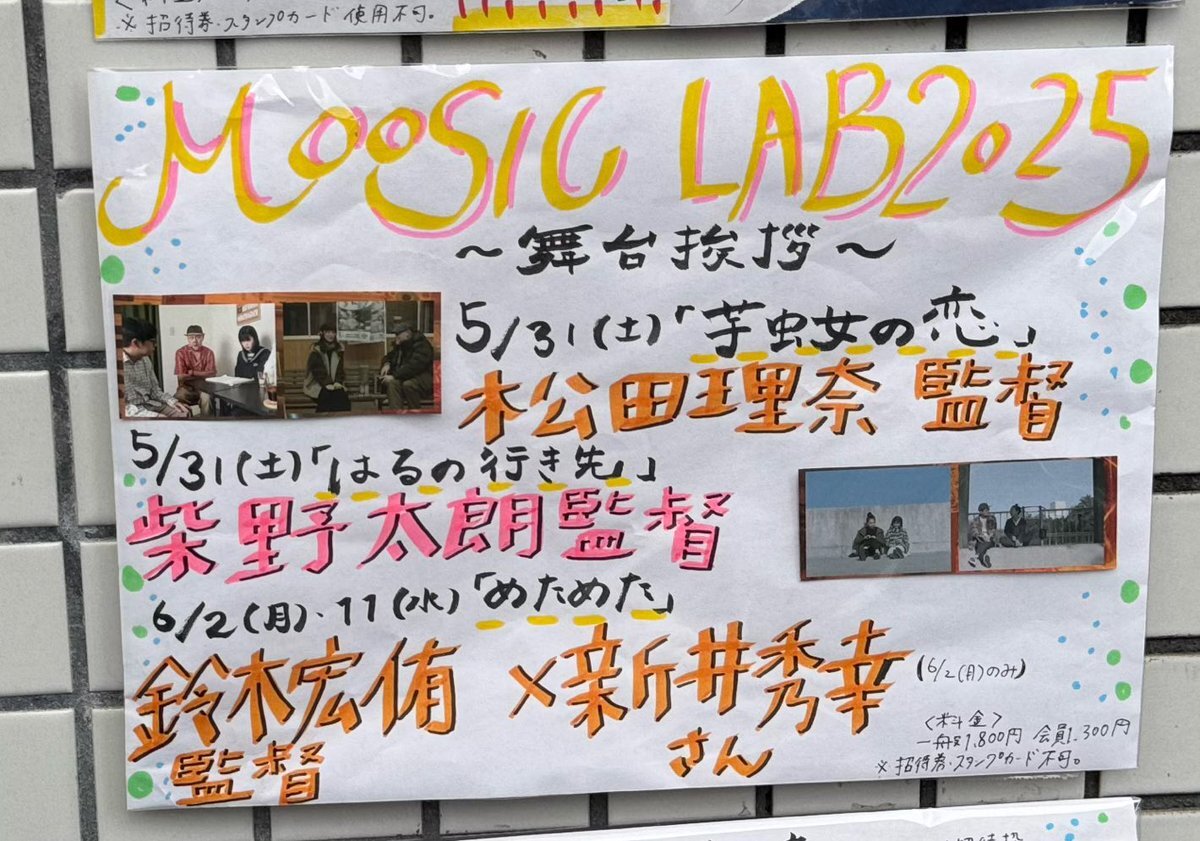 ※招待券・スタンプカード使用不可。
MOOSIC LAB2025
〜舞台挨拶〜
5/31(土)「芋虫女の恋」
松田理奈 監督
5/31(土)「はるの行き先」
柴野太朗監督
6/2(月)・11(水)「めためた」
鈴木宏侑 ×新井秀幸 (6/2(月)のみ)
監督 さん
<料金>
一般1,800円 会員1,300円
※招待券・スタンプカード不可。